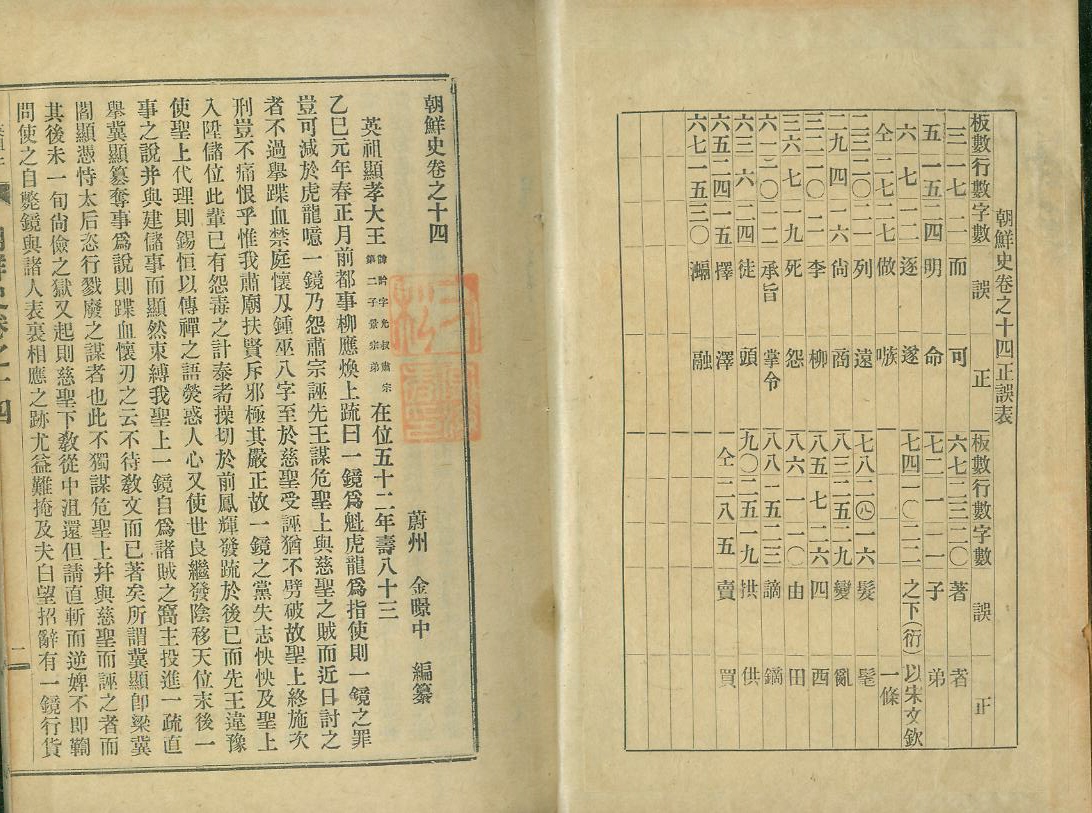 朝鮮史卷之十四正誤表
板數行數字數 誤 正 板數行數字數 誤 正
三 一七 一一 而 可 六七 二三 二〇 著 者
五 一五 二四 明 命 七二 一 一一 子 弟
六 七 一二 逐 遂 七四 一〇 二二 之下(衍) 以宋文欽一條
仝 二七 二七 做 嗾
二三 二〇 二一 列 遠 七八 二〇 一六 髮 髦
二九 四 一六 尙 商 八三 二五 二九 變 亂
三二 二〇 二一 李 柳 八五 七 二六 四 西
三六 七 一九 死 怨 八六 一 一〇 由 田
六一 二〇 一二 承旨 掌令 八八 一五 二三 謫 鏑
六三 六 二四 徒 頭 九〇 二五 一九 拱 供
六五 二四 一五 擇 澤 仝 二八 五 賣 買
六七 一五 三〇 瀜 融
朝鮮史卷之十四
蔚州 金暻中 編纂
英祖顯孝大王 諱昑字光叔肅宗第二子景宗弟 在位五十二年壽八十三
乙巳元年春正月前都事柳應煥上疏曰一鏡爲魁虎龍爲指使則一鏡之罪
豈可減於虎龍噫一鏡乃怨肅宗誣先王謀危聖上與慈聖之賊而近日討之
者不過擧蹀血禁庭懷刄鍾巫八字至於慈聖受誣猶不劈破故聖上終施次
刑豈不痛恨乎惟我肅廟扶賢斥邪極其嚴正故一鏡之黨失志怏怏及聖上
入陞儲位此輩已有怨毒之計泰耇操切於前鳳輝發疏於後已而先王違豫
使聖上代理則錫恒以傳禪之語熒惑人心又使世良繼發陰移天位末後一
事之說并與建儲事而顯然束縛我聖上一鏡自爲諸賊之窩主投進一疏直
擧冀顯簒奪事爲說則蹀血懷刃之云不待敎文而已著矣所謂冀顯卽梁冀
閻顯憑恃太后恣行戮廢之謀者也此不獨謀危聖上幷與慈聖而誣之者而
其後未一旬尙儉之獄又起則慈聖下敎從中沮還但請直斬而逆婢不卽鞫
問使之自斃鏡與諸人表裏相應之跡尤益難掩及夫白望招辭有一鏡行貨